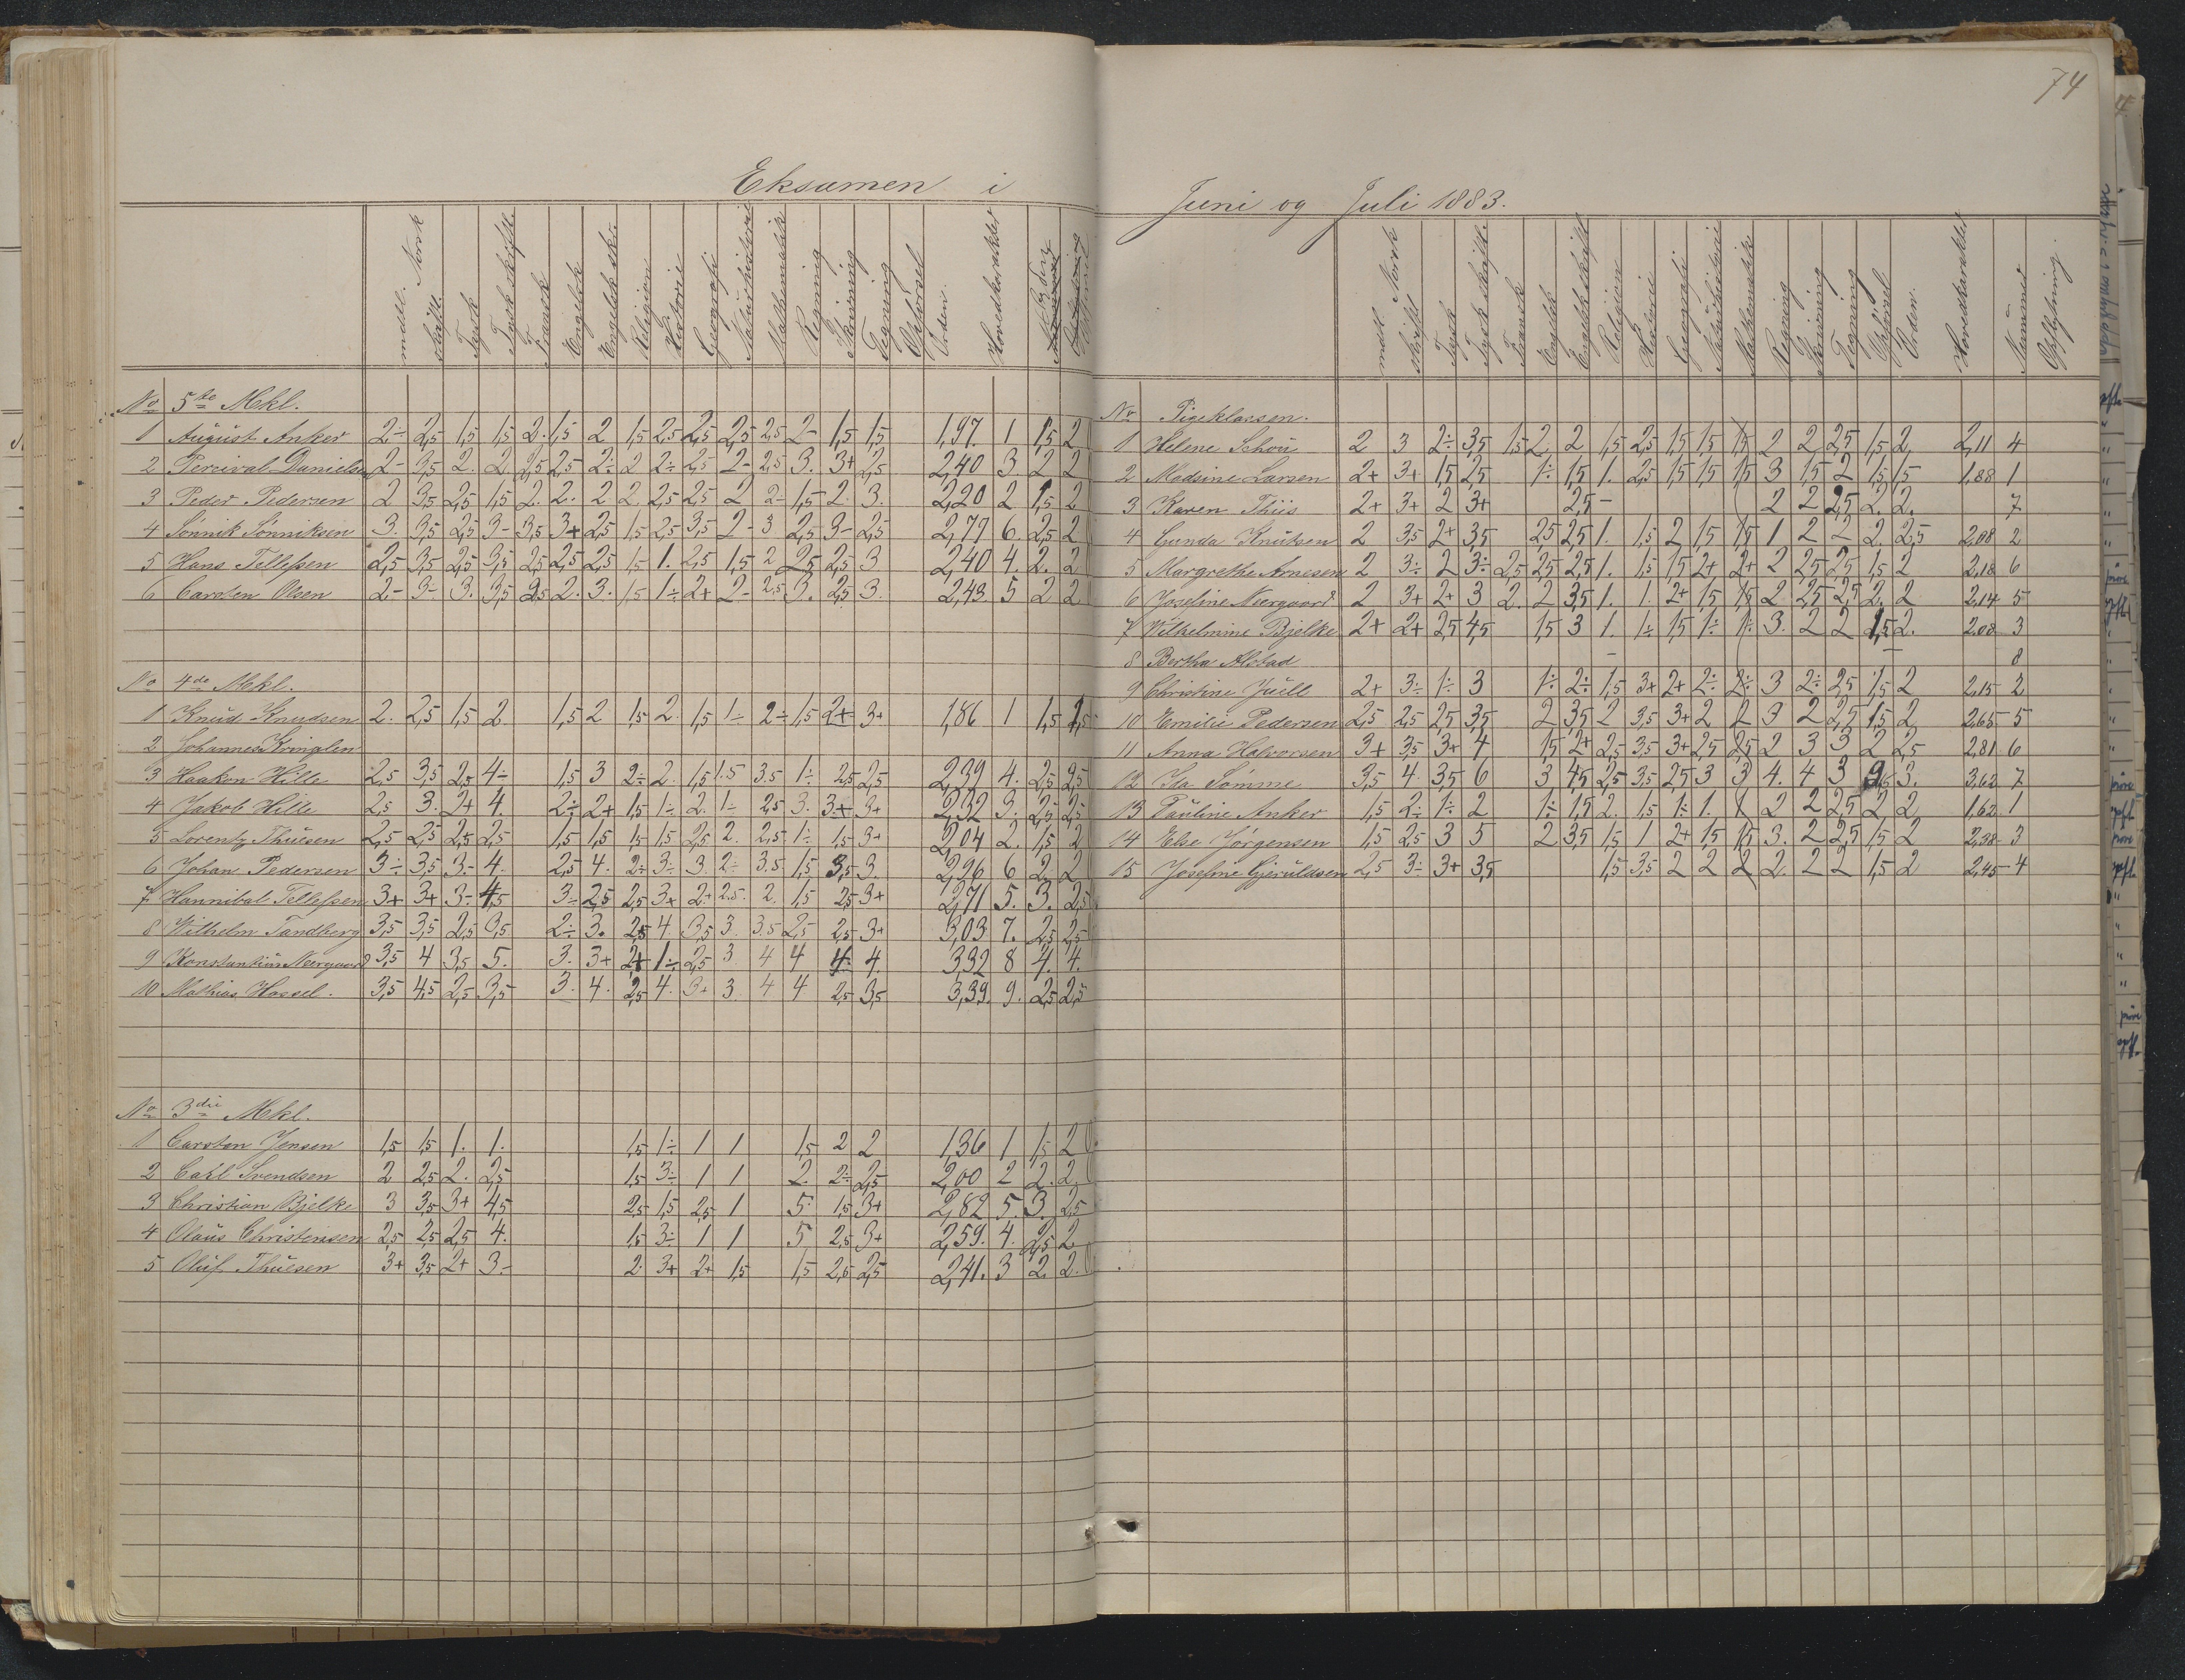 74
Eksamen i Juni og Juli 1883.
mdtl. Norsk
skriftl.
Tysk
Tysk skriftl.
Fransk
Engelsk
Engelsk skr.
Religion
Historie
Geografi
Naturhistorie
Mathematik
Regning
Skrivning
Tegning
Opførsel
Orden
Hovedkarakter
No 5te Mkl.
1 August Anker 2÷ 2,5 1,5 1,5 2. 1,5 2 1,5 2,5 2,5 2,5 2,5 2- 1,5 1,5 1,97. 1 1,5 2
2 Percival Danielsen 2- 3,5 2. 2. 2,5 2,5 2÷ 2 2÷ 2,5 2- 2,5 3. 3+ 2,5 2,40 3 2 2
3 Peder Pedersen 2 3,5 2,5 1,5 2. 2. 2 2. 2,5 2,5 2 2- 1,5 2. 3. 2,20 2 1,5 2
4 Sønnik Sønniksen 3. 3,5 2,5 3- 3,5 3+ 2,5 1,5 2,5 3,5 2- 3 2,5 3- 2,5 2,77 6. 2,5 2
5 Hans Tellefsen 2,5 3,5 2,5 3,5 2,5 2,5 2,5 1,5 1. 2,5 1,5 2 2,5 2,5 3 2,40 4. 2. 2
6 Carsten Olsen 2- 3- 3. 3,5 2,5 2. 3. 1,5 1÷ 2+ 2- 2,5 3. 2,5 3. 2,43. 5 2 2
No 4de Mkl.
1 Knud Knudsen 2. 2,5 1,5 2. 1,5 2 1,5 2. 1,5 1÷ 2÷ 1,5 2+ 3+ 1,86 1 1,5 1,5
2 Johannes Kringlen
3 Haakon Hille 2,5 3,5 2,5 4÷ 1,5 3 2÷ 2. 1,5 1.5 3.5 1÷ 2,5 2,5 2,39 4. 2,5 2,5
4 Jakob Hille 2,5 3. 2+ 4. 2÷ 2+ 1,5 1÷ 2. 1÷ 2,5 3. 3+ 3+ 2,32 3. 2,5 2,5
5 Lorentz Thuesen 2,5 2,5 2,5 2,5 1,5 1,5 1,5 1,5 2,5 2. 2,5 1÷ 1,5 3+ 2,04 2. 1,5 2
6 Johan Pedersen 3÷ 3,5 3- 4. 2,5 4. 2÷ 3÷ 3. 2÷ 3.5 1,5 3,5 3. 2,96 6 2. 2
7 Hannibal Tellefsen 3+ 3+ 3- 4,5 3÷ 2,5 2,5 3+ 2+ 2.5 2. 1,5 2,5 3+ 2,71 5. 3. 2,5
8 Wilhelm Tandberg 3,5 3,5 2,5 3,5 2÷ 3. 2,5 4. 3,5 3. 3.5 2,5 2,5 3+ 3,03 7. 2,5 2,5
9 Konstantin Neergaard 3,5 4 3,5 5. 3. 3+ 2+ 1÷ 2,5 3. 4 4 4. 4. 3,32 8 4. 4.
10 Mathias Hassel. 3,5 4,5 2,5 3,5 3. 4. 2,5 4. 3+ 3. 4 4 2,5 3,5 3,39. 9. 2,5 2,5
No 3die Mkl.
1 Carsten Jensen 1,5 1,5 1. 1. 1,5 1÷ 1 1 1,5 2 2 1,36 1 1,5 2
2 Carl Svendsen 2 2,5 2. 2,5 1,5 3÷ 1 1 2. 2÷ 2,5 2,00 2 2. 2.
3 Christian Bjelke 3 3,5 3+ 4,5 2,5 1,5 2,5 1 5. 1,5 3+ 2,82 5 3. 2,5
4 Olaus Christensen 2,5 2,5 2,5 4. 1,5 3÷ 1 1 5 2,5 3+ 2,59. 4. 2,5 2
5 Oluf Thuesen 3+ 3,5 2+ 3- 2. 3+ 2+ 1,5 1,5 2,5 2,5 2,41. 3 2. 2.
mdtl Norsk
skriftl
Tysk
Tysk skriftl.
Fransk
Engelsk
Engelsk skriftl
Religion
Historie
Geografi
Naturhistorie
Mathematik
Regning
Skrivning
Tegning
Opførsel
Orden.
Hovedkarakter
Nummer
Opflytning.
No Pigeklassen.
1 Helene Schou 2 3 2÷ 3,5 1,5 2 2 1,5 2,5 1,5 1,5 1,5 2 2 2,5 1,5 2 2,11 4
2 Madsine Larsen 2+ 3+ 1,5 2,5 1÷ 1,5 1. 2,5 1,5 1,5 1,5 3 1,5 2 1,5 1,5 1,88 1
3 Karen Thiis 2+ 3+ 2 3+ 2,5 - 2 2 2,5 2. 2. 7
4 Gunda Knutsen 2 3,5 2+ 3,5 2,5 2,5 1. 1,5 2 1,5 1,5 1 2 2 2. 2,5 2,08 2
5 Margrethe Arnesen 2 3÷ 2 3÷ 2,5 2,5 2,5 1. 1,5 1,5 2+ 2+ 2 2,5 2,5 1,5 2 2,18 6
6 Josefine Neergaard 2 3+ 2+ 3 2. 2 3,5 1. 1. 2+ 1,5 1,5 2 2,5 2,5 2. 2 2,14 5
7 Wilhelmine Bjelke 2+ 2+ 2,5 4,5 1,5 3 1. 1÷ 1,5 1÷ 1÷ 3. 2 2 1,5 2. 2,08 3
8 Bertha Alstad - - 8
9 Christine Juell 2+ 3÷ 1÷ 3 1÷ 2÷ 1,5 3+ 2+ 2÷ 2÷ 3 2÷ 2,5 1,5 2 2,15 2
10 Emilie Pedersen 2,5 2,5 2,5 3,5 2 3,5 2 3,5 3+ 2 2 3 2 2,5 1,5 2 2,65 5
11 Anna Halvorsen 3+ 3,5 3+ 4 1,5 2+ 2,5 3,5 3+ 2,5 2,5 2 3 3 2 2,5 2,81 6
12 Ida Sømme 3,5 4. 3,5 6 3 4,5 2,5 3,5 2,5 3 3 4. 4 3 3. 3,62 7
13 Pauline Anker 1,5 2÷ 1÷ 2 1÷ 1,5 2. 1,5 1÷ 1. 1 2 2 2,5 2 2 1,62 1
14 Else Jørgensen 1,5 2,5 3 5 2 3,5 1,5 1 2+ 1,5 1,5 3. 2 2,5 1,5 2 2,38 3
15 Josefine Gjeruldsen 2,5 3÷ 3+ 3,5 1,5 3,5 2 2 2 2. 2 2 1,5 2 2,45 4